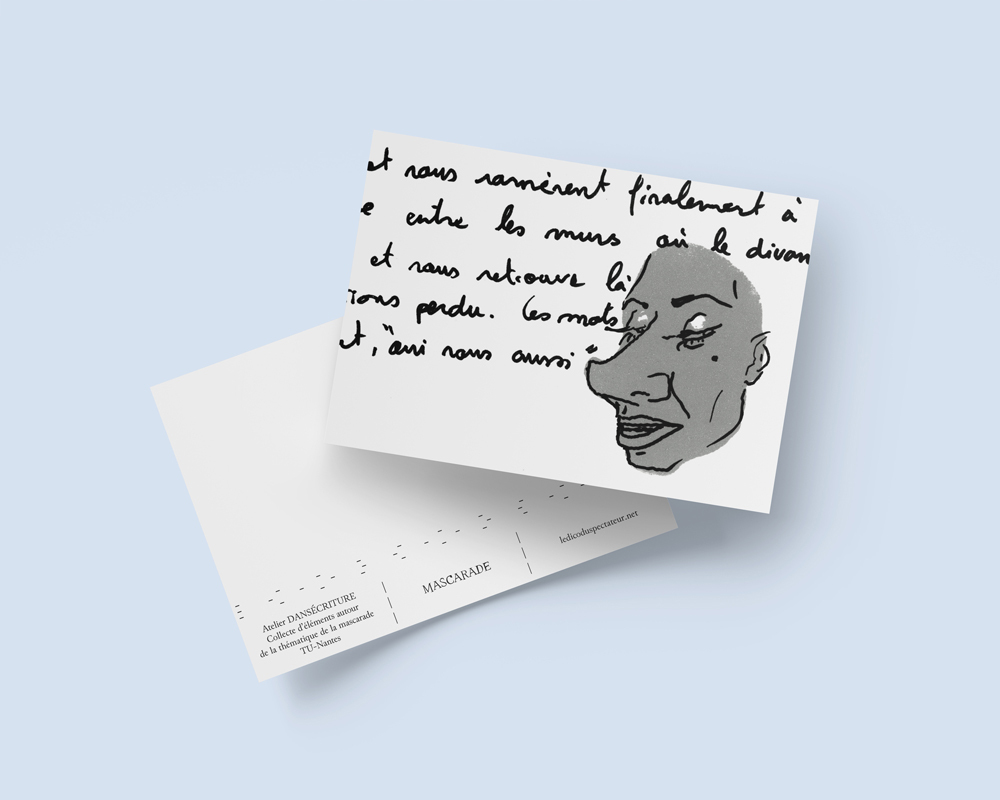 et nous ramènent finalement à
e entre les murs où le divan
et nous retrouve là
rons perdu. Ces mots
t, "oui nous aussi"
Atelier DANSÉCRITURE
Collecte d'éléments autour
de la thématique de la mascarade
TU-Nantes
MASCARADE
ledicoduspectateur.net